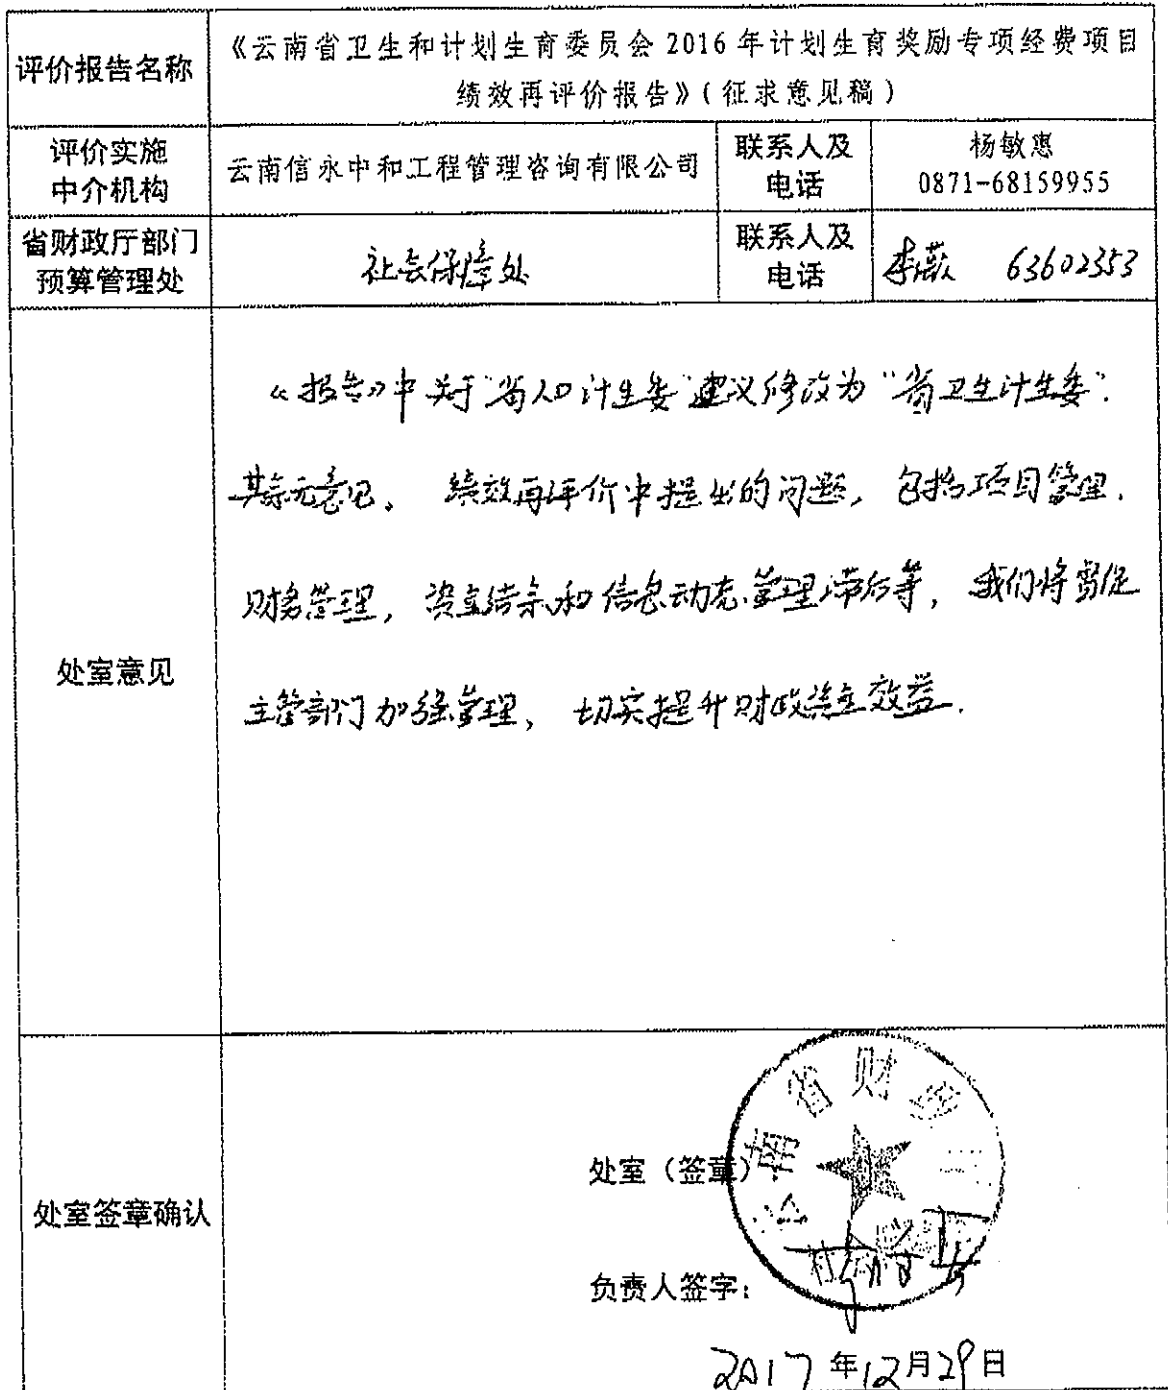 评价报告名称
《云南省卫生和计划生育委员会 2016 年计划生育奖励专项经费项目
绩效再评价报告》(征求意见稿)
评价实施
中介机构
云南信永中和工程管理咨询有限公司
联系人及
电话
杨敏惠
0871-68159955
省财政厅部门
预算管理处
社会保障处
联系人及
电话
李薇 63602353
处室意见
《报告》中关于"省人口计生委"建议修改为"省卫生计生委".
其余无意见。绩效再评价中提出的问题,包括项目管理.
财务管理,资金结余和信息动态管理滞后等,我们将督促
主管部门加强管理,切实提升财政资金效益.
处室签章确认
云南省财政厅
处室(签章)
负责人签字:
2017年12月29日